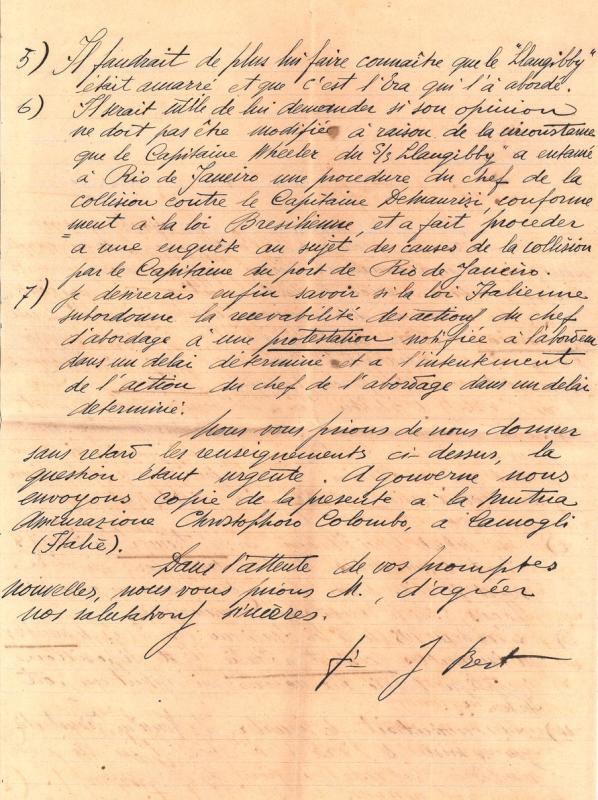 5) Il faudrait de plus lui faire connaître que le "Llangibby"
était amarré et que c'est l'Era qui l'a abordé.
6) Il serait utile de lui demander si son opinion
ne doit pas être modifiée à raison de la circonstance
que le Capitaine Wheeler du S/S Llangibby" a entamé
à Rio de Janeiro une procédure du chef de la
collision contre le Capitaine Demaurizi, conforme
ment à la loi Bresilienne, et a fait procéder
a une enquête au sujet des causes de la collision
par le Capitaine du port de Rio de Janeiro.
7) Je desirerais enfin savoir si la loi Italienne
subordonne la recevabilité des actions du chef
d'abordage à une protestation notifiée à l'abordeur
dans un delai déterminé et a l'intentement
de l'action du chef de l'abordage dans un delai
determiné.
Nous vous prions de nous donner
sans retard les renseignements ci-dessus, la
question étant urgente. A gouverne nous
envoyons copie de la presente à la Mutua
Assicurazione Christophoro Colombo, à Camogli
(Italie).
Dans l'attente de vos promptes
nouvelles, nous vous prions M., d'agréer
nos salutations sincères.
J Bert